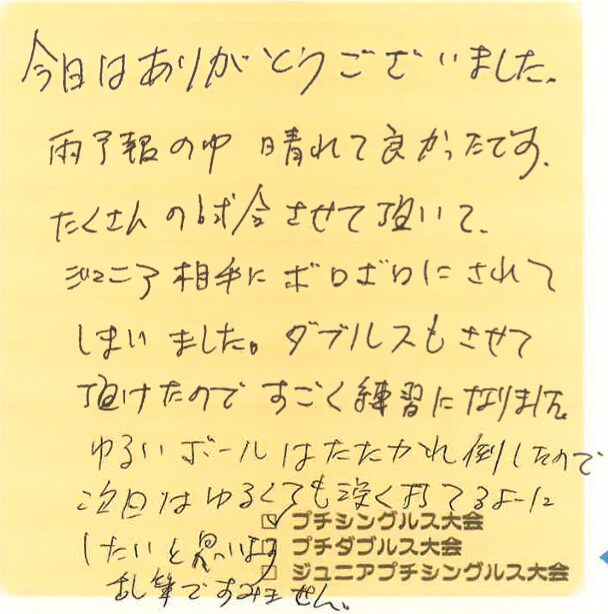 今日はありがとうございました。
雨予報の中 晴れて良かったです。
たくさんの試合させて頂いて、
ジュニア相手にボロボロにされて
しまいました。ダブルスもさせて
頂けたので すごく練習になりました。
ゆるいボールはたたかれ倒したので
次回はゆるくても深く打てるように
したいと思います
乱筆ですみません。
☑ プチシングルス大会
プチダブルス大会
□ ジュニアプチシングルス大会